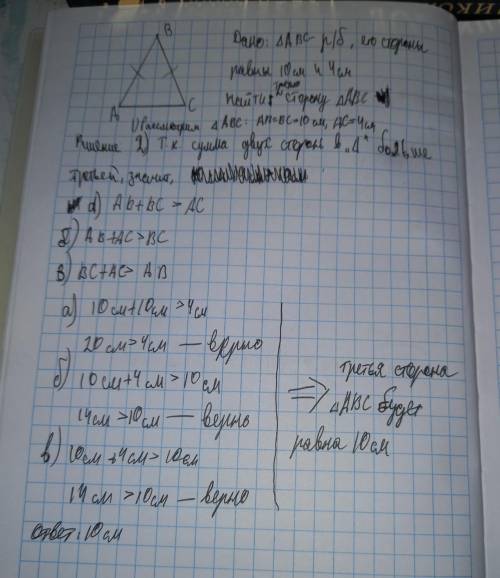 B
A
C
Дано: △ABC - р/б, его стороны
равны 10 см и 4 см
Найти: третью сторону △ABC
1) Рассмотрим △ABC: AB=BC=10 см, AC=4 см
Решение 2) Т.к. сумма двух сторон в "△" больше
третьей, значит,
а) AB+BC > AC
б) AB+AC>BC
в) BC+AC> AB
а) 10 см+10 см >4 см
20 см>4 см — верно
б) 10 см+4 см > 10 см
14 см >10 см — верно
в) 10 см +4 см> 10 см
14 см >10 см — верно
⇒ третья сторона
△ABC будет
равна 10 см
Ответ: 10 см